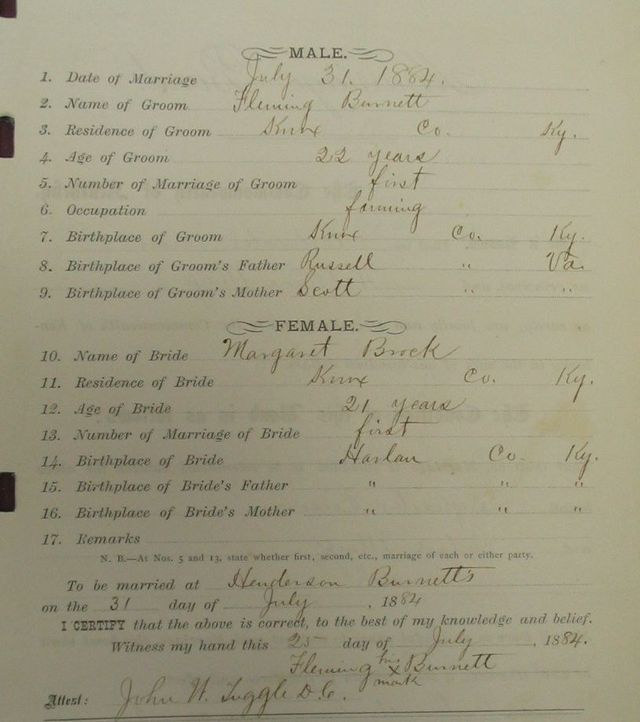 MALE.
1. Date of Marriage July 31. 1884.
2. Name of Groom Fleming Burnett
3. Residence of Groom Knox Co. Ky.
4. Age of Groom 22 years
5. Number of Marriage of Groom first
6. Occupation farming
7. Birthplace of Groom Knox Co. Ky.
8. Birthplace of Groom's Father Russell " Va.
9. Birthplace of Groom's Mother Scott " "
FEMALE.
10. Name of Bride Margaret Brock
11. Residence of Bride Knox Co. Ky.
12. Age of Bride 21 years
13. Number of Marriage of Bride first
14. Birthplace of Bride Harlan Co. Ky.
15. Birthplace of Bride's Father " " "
16. Birthplace of Bride's Mother " " "
17. Remarks
N. B.—At Nos. 5 and 13, state whether first, second, etc., marriage of each or either party.
To be married at Henderson Burnett's
on the 31 day of July, 1884
I CERTIFY that the above is correct, to the best of my knowledge and belief.
Witness my hand this 25 day of July, 1884.
Fleming his x mark Burnett
Attest: John W. Tuggle D.C.